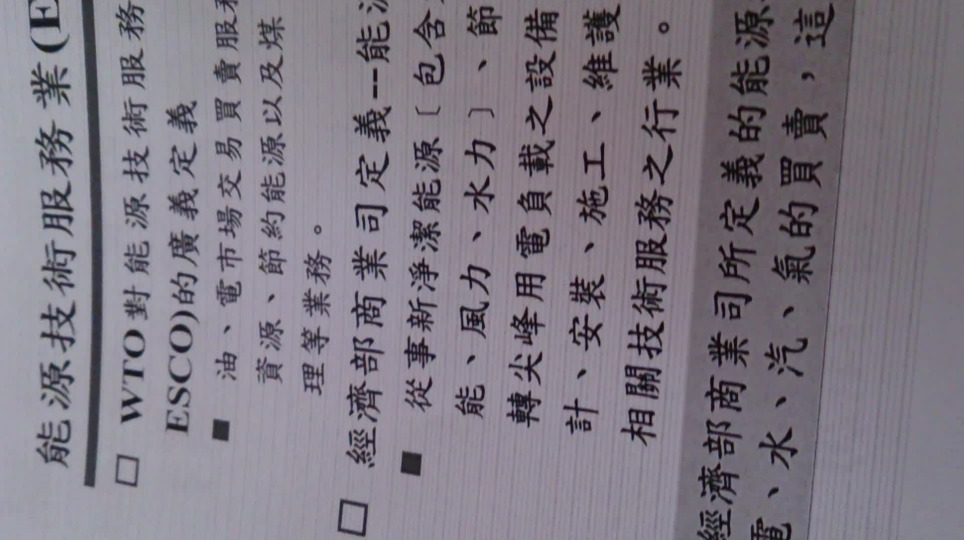 能源技術服務業(E
WTO對能源技術服務
ESCO)的廣義定義
油、電市場交易買賣服務
資源、節約能源以及煤
理等業務。
經濟部商業司定義--能源
從事新淨潔能源〔包含
能、風力、水力〕、節
轉尖峰用電負載之設備
計、安裝、施工、維護
相關技術服務之行業。
經濟部商業司所定義的能源
電、水、汽、氣的買賣，這